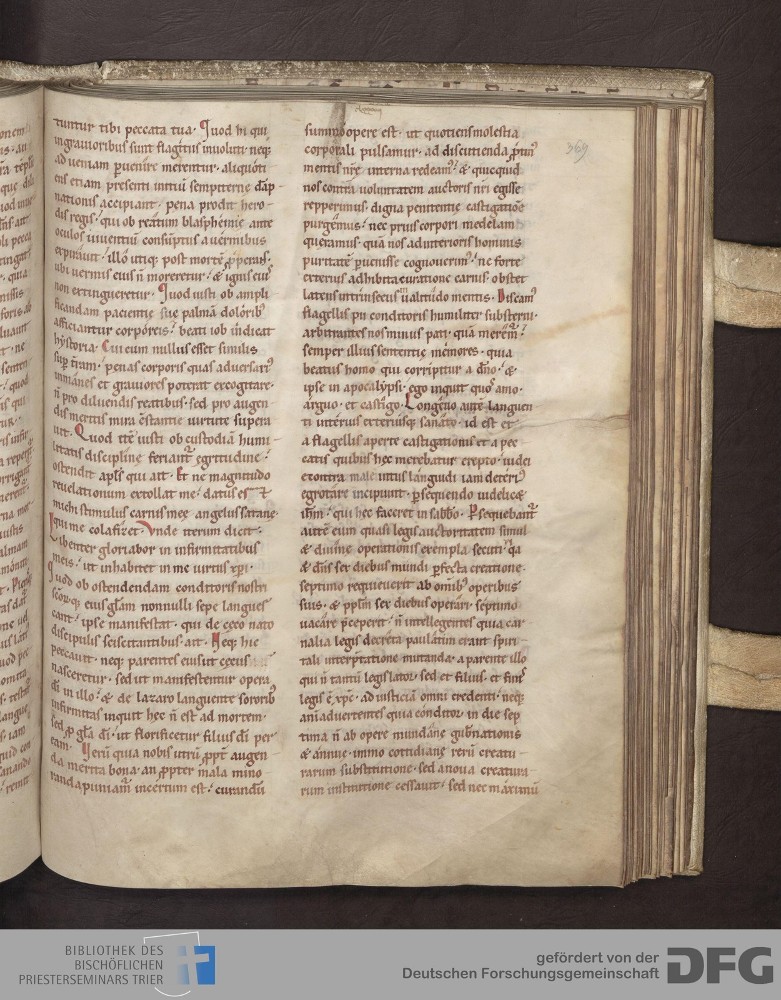 tuntur tibi peccata tua. Quod hi qui
ingravioribus sunt flagitiis involuti neq;
ad veniam pvenire merentur. aliquoti
ens etiam presenti initiū sempiterne dāp
nationis accipiant. pena prodit hero
dis regis. qui ob reatum blasphemie ante
oculos viventiū consūptus a vermibus
expiravit. illo utiq; post mortē
ubi vermis eius n̄ moreretur. & ignis eius
non extingueretur. Quod iusti ob ampli
ficandam pacientie sue palmā doloribꝰ
afficiantur corporeis. beati iob indicat
hystoria. Cui cum nullus esset similis
sup t̄ram. penas corporis quas adversariꝰ
inmanes et graviores poterat excogitare.
n̄ pro diluendis reatibus. sed pro augen
dis meritis mira c̄stantie virtute supera
vit. Quod itē iusti ob custodiā humi
litatis discipline feriant᷑ egritudine.
ostendit apl̄s qui ait. Et ne magnitudo
revelationum extollat me. datus est
michi stimulus carnis mee angelus satane.
qui me colafizet. Vnde iterum dicit.
Libenter gloriabor in infirmitatibus
meis. ut inhabitet in me virtus xp̄i.
Quod ob ostendendam conditoris nostri
eius gl̄am nonnulli sepe langues
cant. ipse manifestat. qui de ceco nato
discipulis sciscitantibus ait. Neq; hic
peccavit. neq; parentes eius ut cecus
nasceretur. sed ut manifestentur opera
dī in illo. & de lazaro languente sororibꝰ
infirmitas inquit hec n̄ est ad mortem.
sed p gl̄a dī. ut glorificetur filius dī per
eam. Verū quia nobis utrū ppt̄ augen
da merita bona. an ppter mala mino
randa puniam̄ incertum est. curandū
summoopere est. ut quotiens molestia
corporali pulsamur. ad discutienda
mentis nr̄e interna redeamꝰ. & quicquid
nos contra voluntatem auctoris nr̄i egisse
repperimus. digna penitentie castigatiōe
purgemus. nec prius corpori medelam
queramus. quā nos ad interioris hominis
puritatē pvenisse cognoverimꝰ. ne forte
exterius adhibita curatione carnis. obstet
latens intrinsecus valitudo mentis. Discamꝰ
flagellis pii conditoris humiliter substerni.
arbitrantes nos minus pati. quā meremꝰ.
semper illius sententie memores. quia
beatus homo qui corripitur a dn̄o. &
ipse in apocalypsi. ego inquit quos amo.
arguo. et castigo. Longevo autē languen
ti interius exteriusq; sanato. id est et
a flagellis aperte castigationis et a pec
catis quibus hec merebatur erepto. iudei
econtra male intus languidi iam deteriꝰ
egrotare incipiunt. psequendo videlicet
ih̄m. qui hec faceret in sabbo. Psequebant᷑
autē eum quasi legis auctoritatem simul
& divine operationis exempla secuti. q̄a
& dn̄s sex diebus mundi pfecta creatione.
septimo requieverit ab om̄ibꝰ operibus
suis. & pplm̄ sex diebus operari. septimo
vacare pceperit. n̄ intellegentes quia car
nalia legis decreta paulatim erant spiri
tali interptatione mutanda. a parente illo
qui n̄ tantū legislator. sed et filius. et finis
legis ē xp̄c. ad iusticiā omni credenti. neq;
animadvertentes quia conditor in die sep
tima n̄ ab opere mundane gub̄nationis
& annue. immo cottidiane rerū creatu
rarum substitutione. sed a nova creatura
rum institutione cessavit. sed nec maximū
369
BIBLIOTHEK DES
BISCHÖFLICHEN
PRIESTERSEMINARS TRIER
gefördert von der
Deutschen Forschungsgemeinschaft
DFG